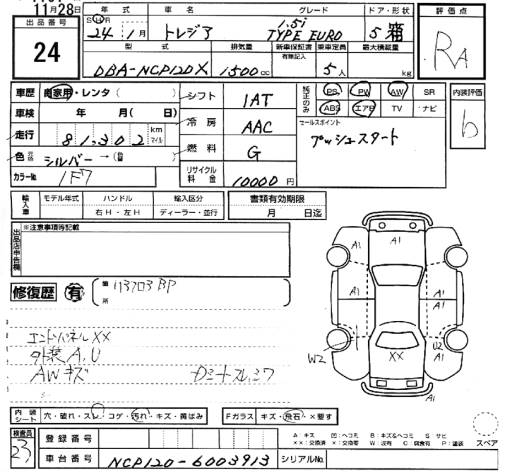 11月28日
出品番号
24
年式
車名
グレード
ドア・形状
24年 1月
トレジア
1.5i
TYPE EURO
5 箱
評価点
RA
型式
排気量
新車保証書
有無記入
乗車定員
最大積載量
DBA-NCP120X
1500cc
5人
kg
車歴
自家用・レンタ( )
シフト
1AT
純正のみ
PS
PW
AW
SR
ABS
エアB
TV
ナビ
内装評価
b
車検
年 月( 日)
冷房
AAC
セールスポイント
プッシュスタート
走行
81,302
km
マイル
色
シルバー→(色)
燃料
G
カラーNo
1F7
リサイクル料金
10000円
輸入車
モデル年式
ハンドル
右H・左H
輸入区分
ディーラー・並行
書類有効期限
月 日迄
出品店申告欄
※注意事項等記載
修復歴
有
箇所
A1
A1
A1
A1
A1
A1
A1
U2
A1
W2
XX
エンドパネルXX
外装A,U
AWキズ
内装シート
穴・破れ・スレ・コゲ・汚れ・キズ・黄ばみ
Fガラス
キズ・飛石・×要す
検査員
23
登録番号
車台番号
NCP120-6003913
シリアルNo.
A キズ
凹:ヘコミ
B:キズ&ヘコミ
S サビ
××:交換済
×:交換等
W:波有
C:腐食有
P:塗装
スペア